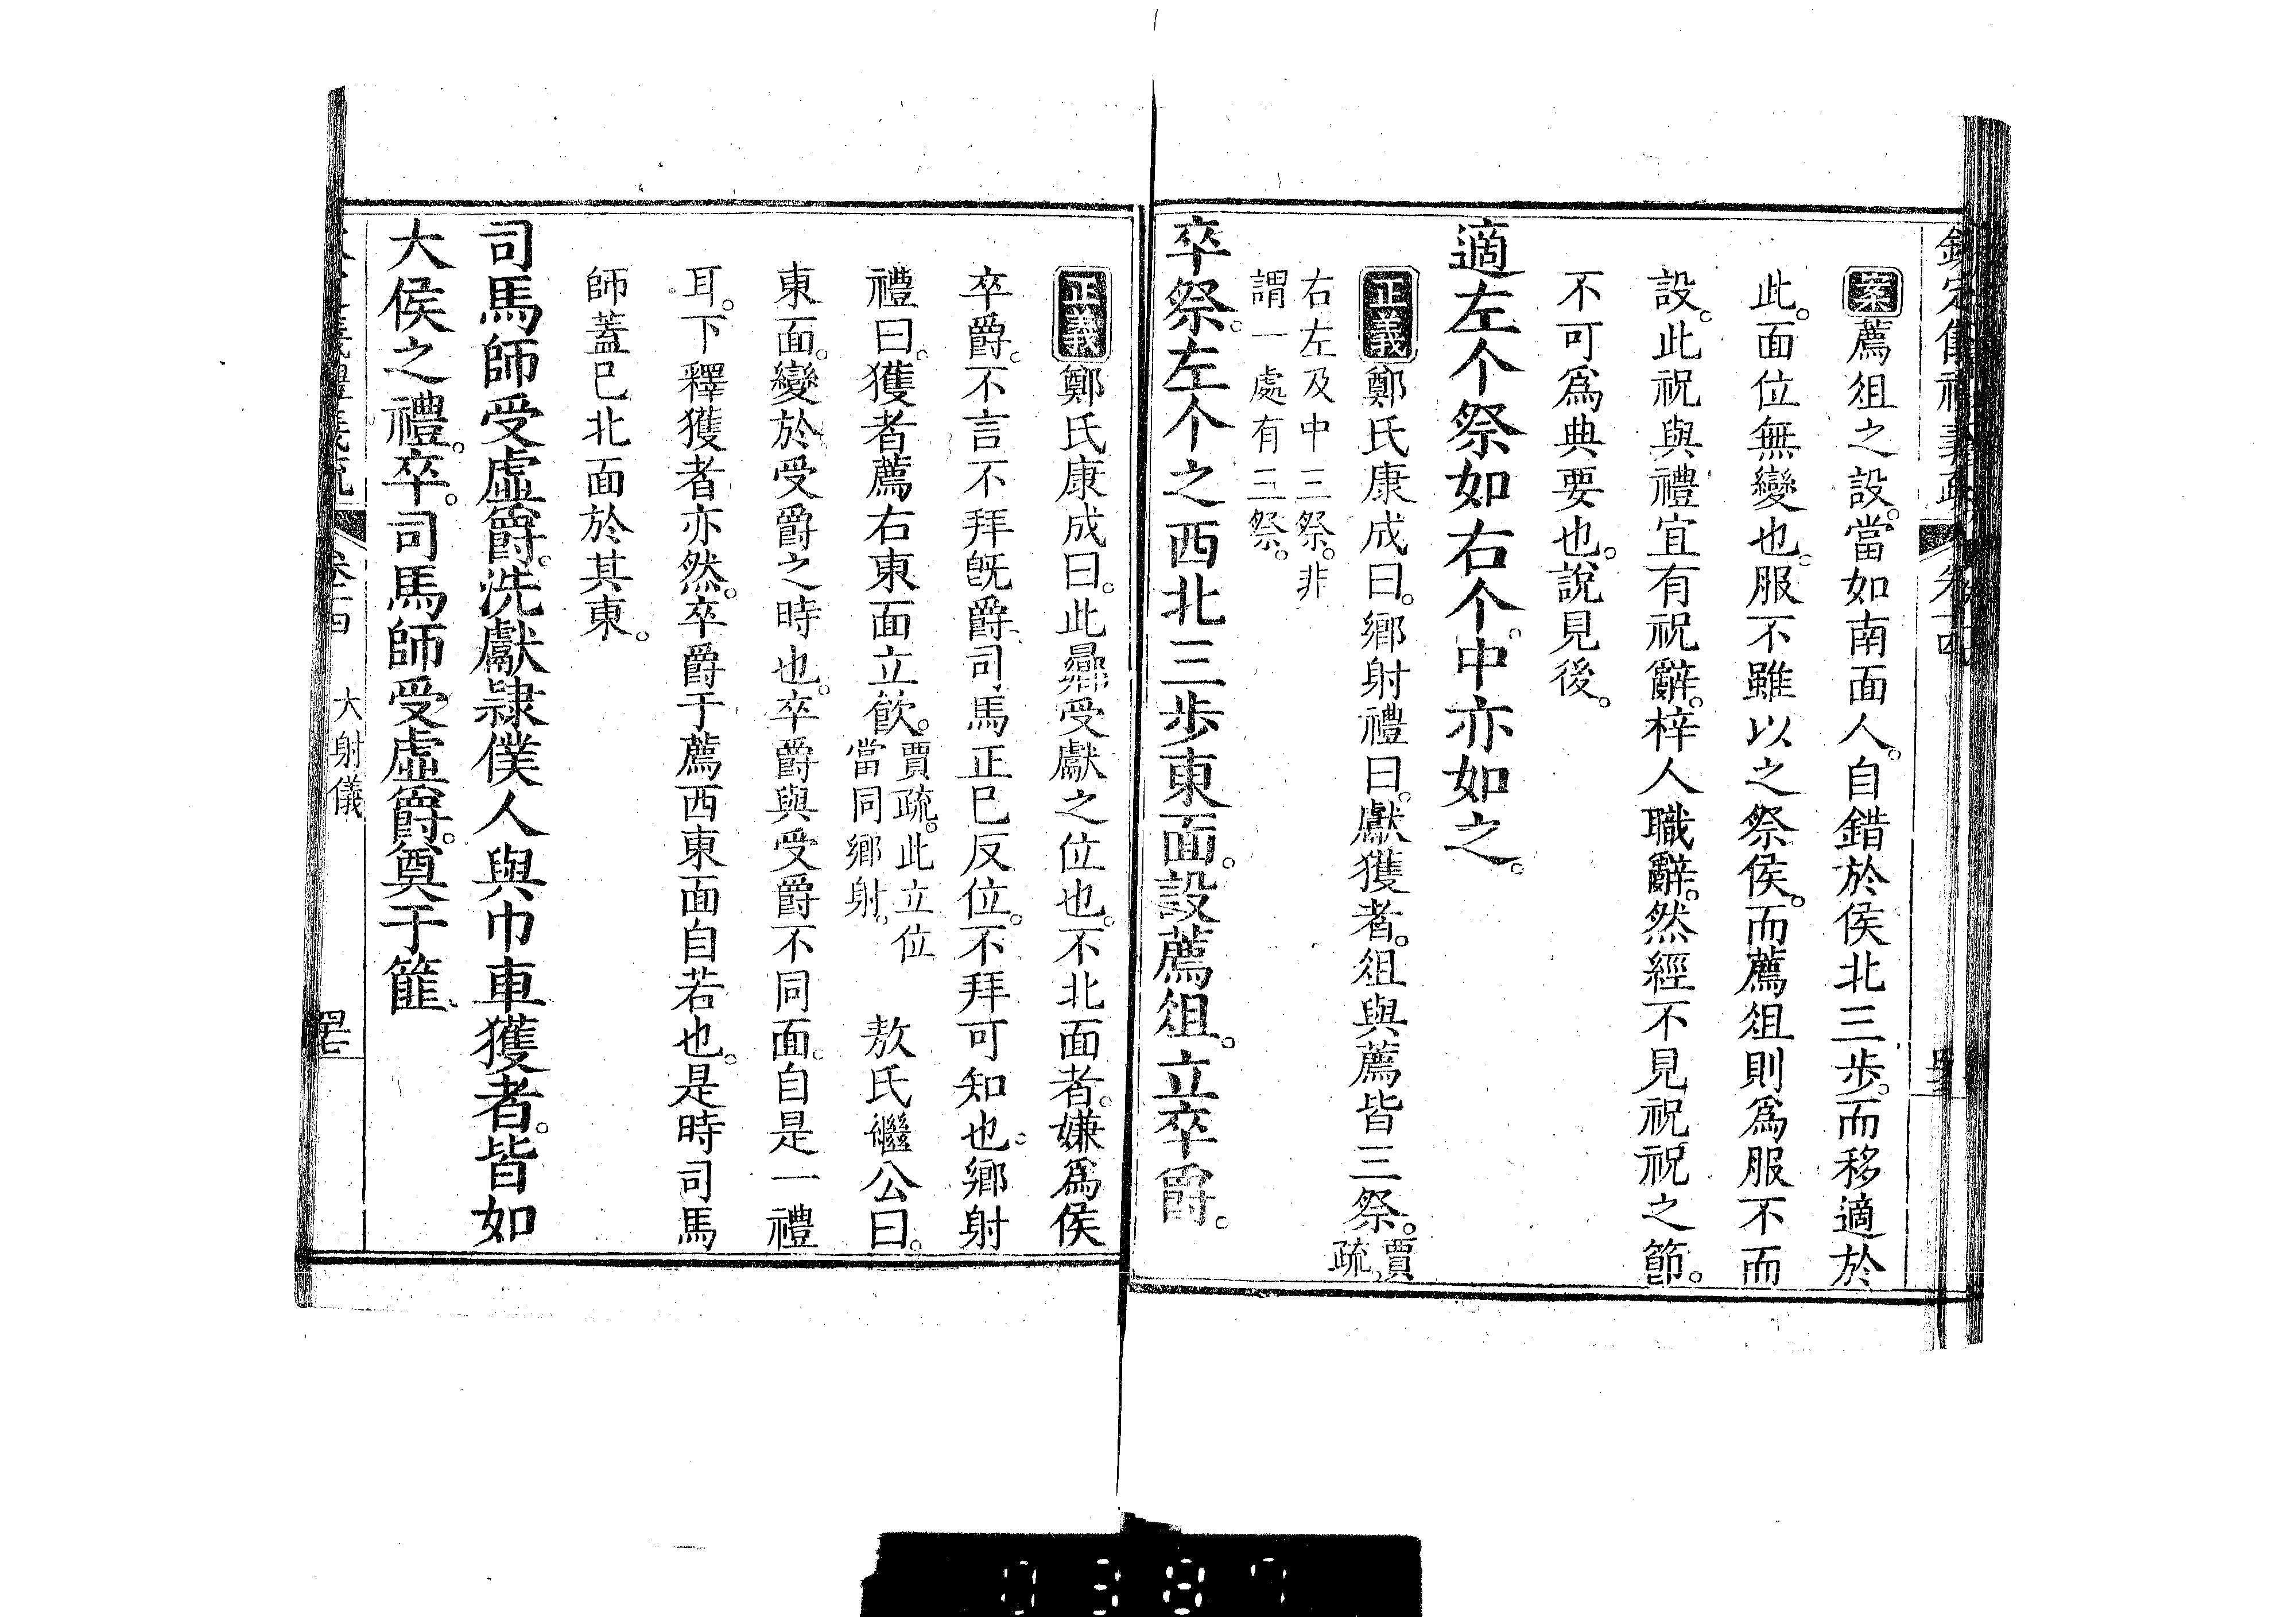 欽定儀禮義疏 卷十四
案薦俎之設。當如南面人。自錯於侯北三步。而移適於
此。面位無變也。服不雖以之祭侯。而薦俎則爲服不而
設。此祝與禮宜有祝辭。梓人職辭。然經不見祝祝之節。
不可爲典要也。說見後。
適左个祭如右个。中亦如之。
正義鄭氏康成曰。鄉射禮曰。獻獲者。俎與薦皆三祭。賈疏。
右左及中三祭。非
謂一處有三祭。
卒祭。左个之西北三步東面。設薦俎。立卒爵。
正義鄭氏康成曰。此鄉受獻之位也。不北面者。嫌爲侯
卒爵。不言不拜旣爵。司馬正已反位。不拜可知也。鄉射
禮曰。獲者薦右東面立飲。賈疏。此立位
當同鄉射。 敖氏繼公曰。
東面。變於受爵之時也。卒爵與受爵不同面。自是一禮
耳。下釋獲者亦然。卒爵于薦西東面自若也。是時司馬
師蓋已北面於其東。
司馬師受虛爵。洗獻隸僕人與巾車獲者。皆如
大侯之禮。卒。司馬師受虛爵。奠于篚。
大射儀
0387